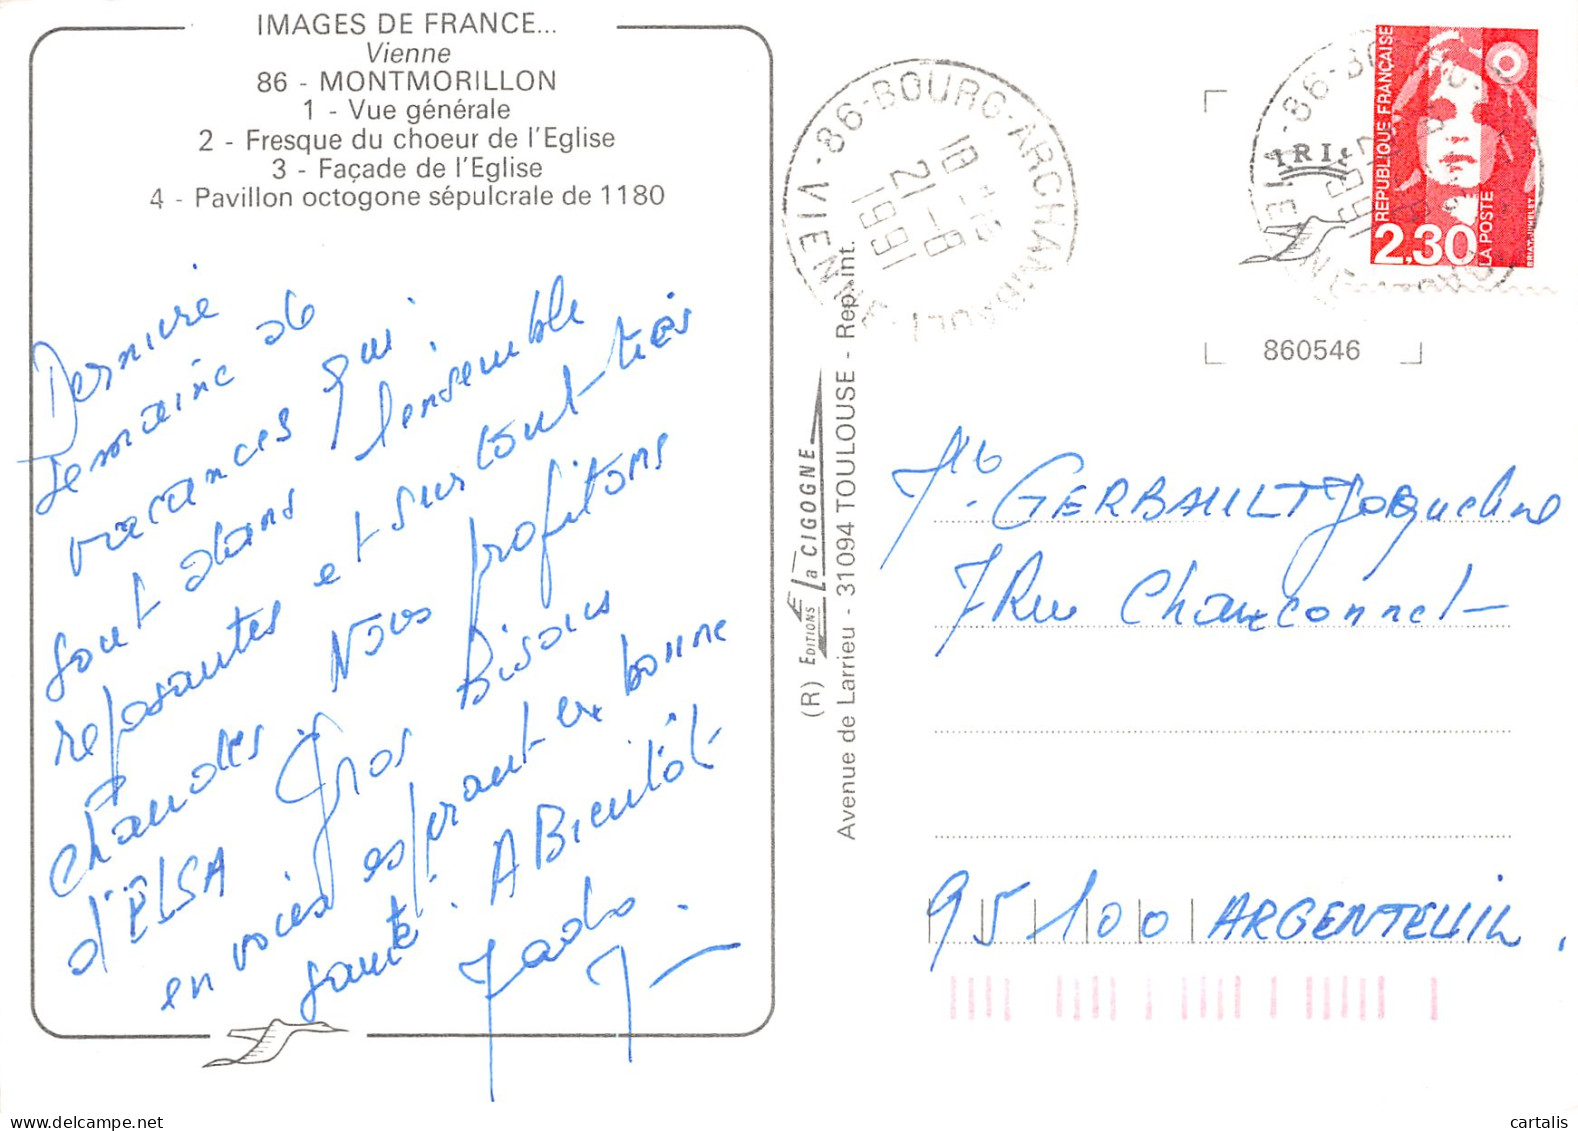 IMAGES DE FRANCE...
Vienne
86 - MONTMORILLON
1 - Vue générale
2 - Fresque du choeur de l'Eglise
3 - Façade de l'Eglise
4 - Pavillon octogone sépulcrale de 1180
Dernière
semaine de
vacances qui
sont dans l'ensemble
reposantes et surtout très
chaudes. Nous profitons
d'ELSA Gros Bisous
en voies espérant en bonne
santé. A Bientôt
(R) EDITIONS La CIGOGNE
Avenue de Larrieu - 31094 TOULOUSE - Rep. int.
86-BOURG-ARCHAMBAULT-VIENNE
21-8
1991
IRIS
REPUBLIQUE FRANÇAISE
2,30
LA POSTE
BRIAT-JUMELET
860546
GERBAULT Jacqueline
7 Rue Chauconnet
95100 ARGENTEUIL.
cartalis